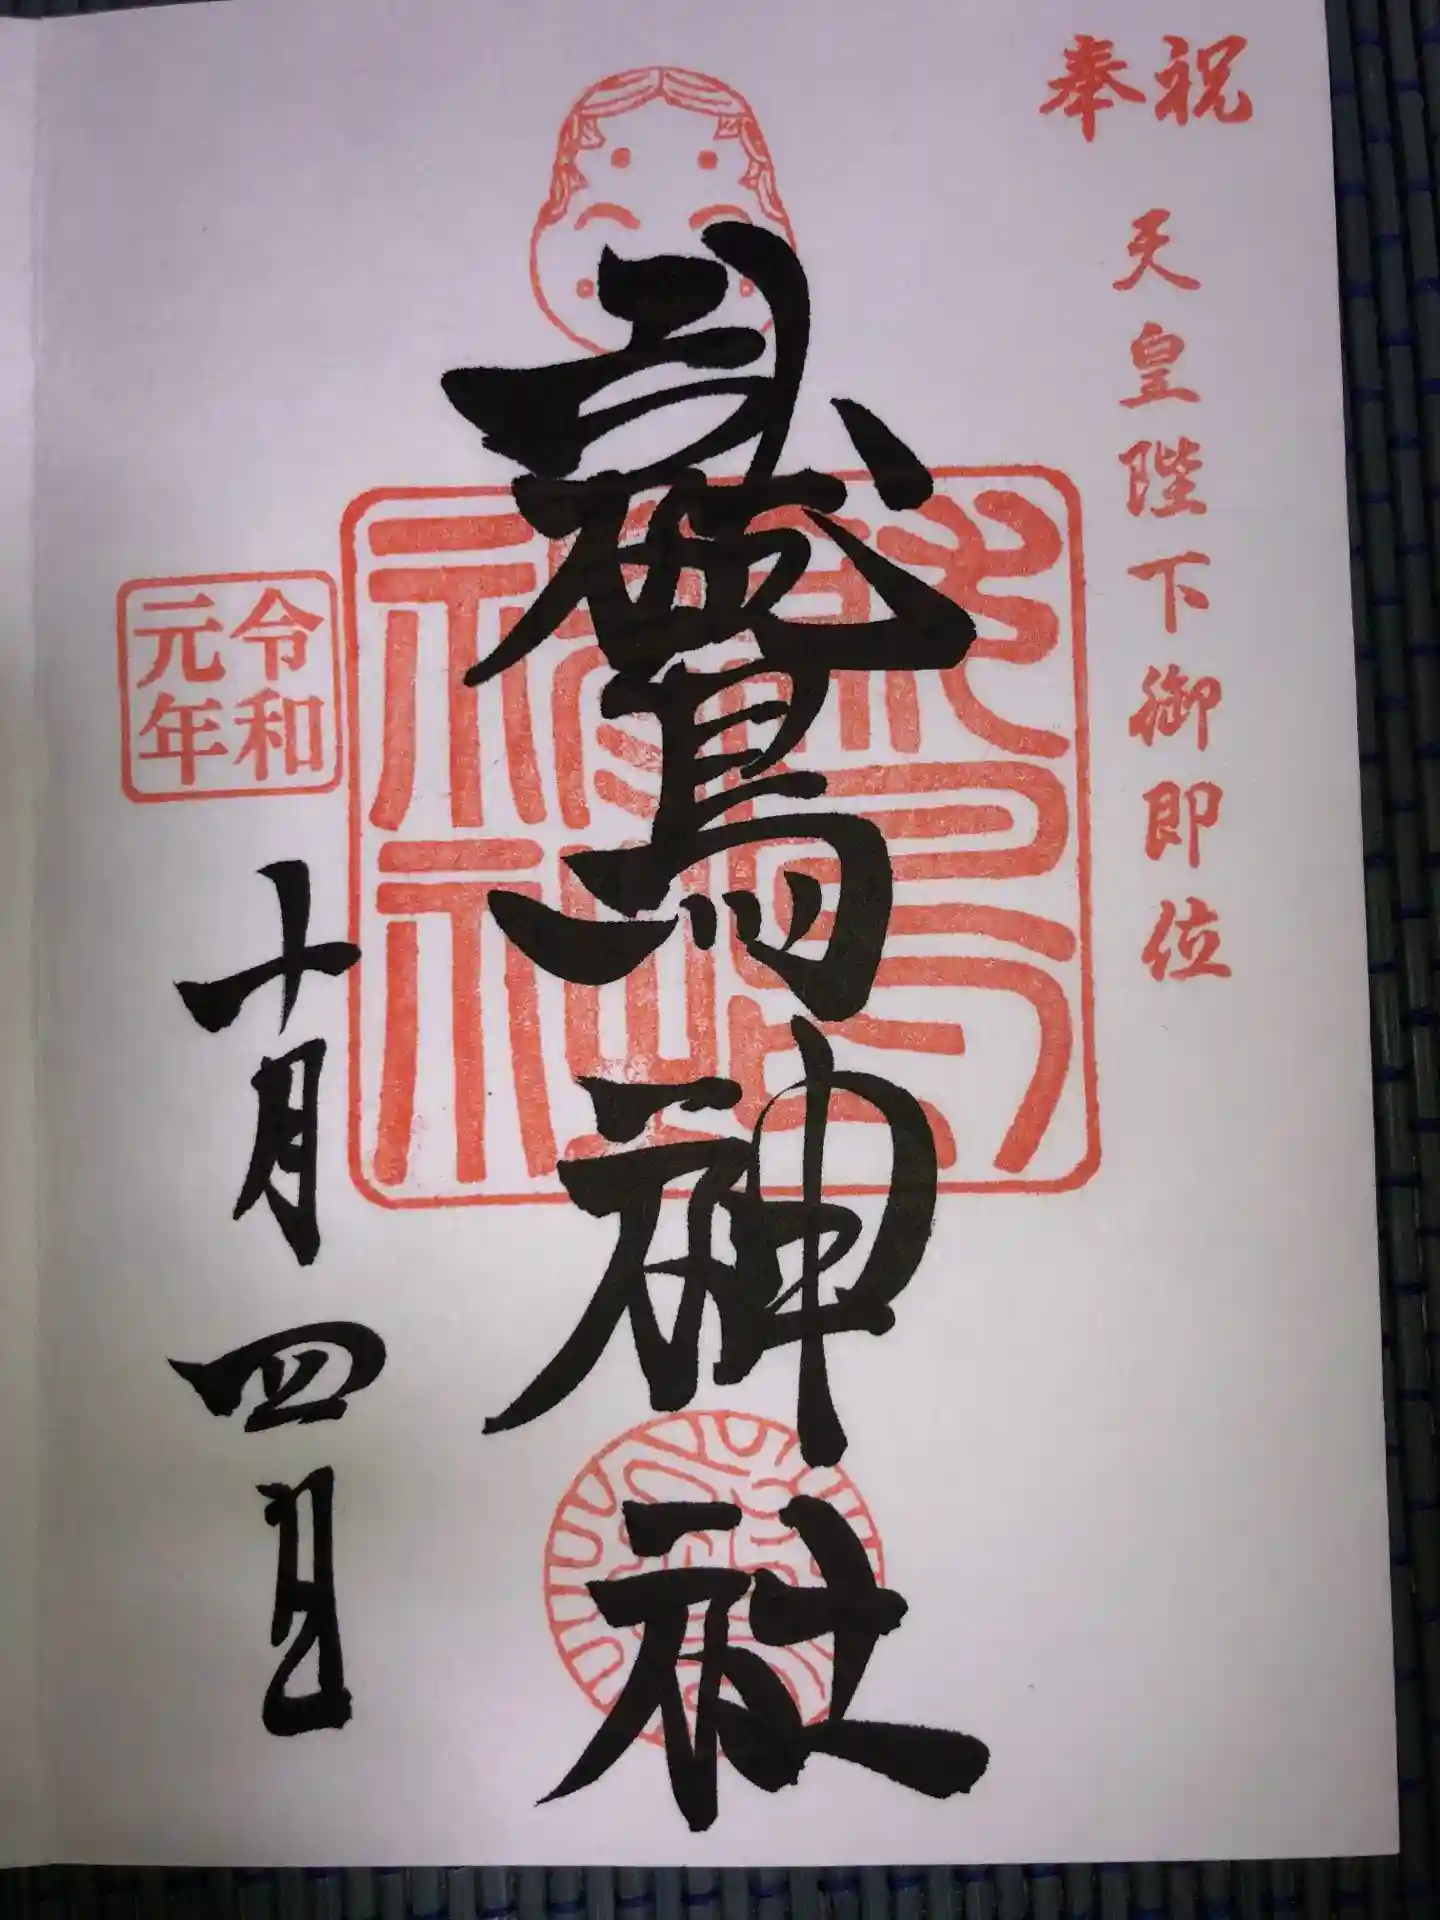 奉祝
天皇陛下御即位
鷲神社
鷲神社
令和
元年
十月四日